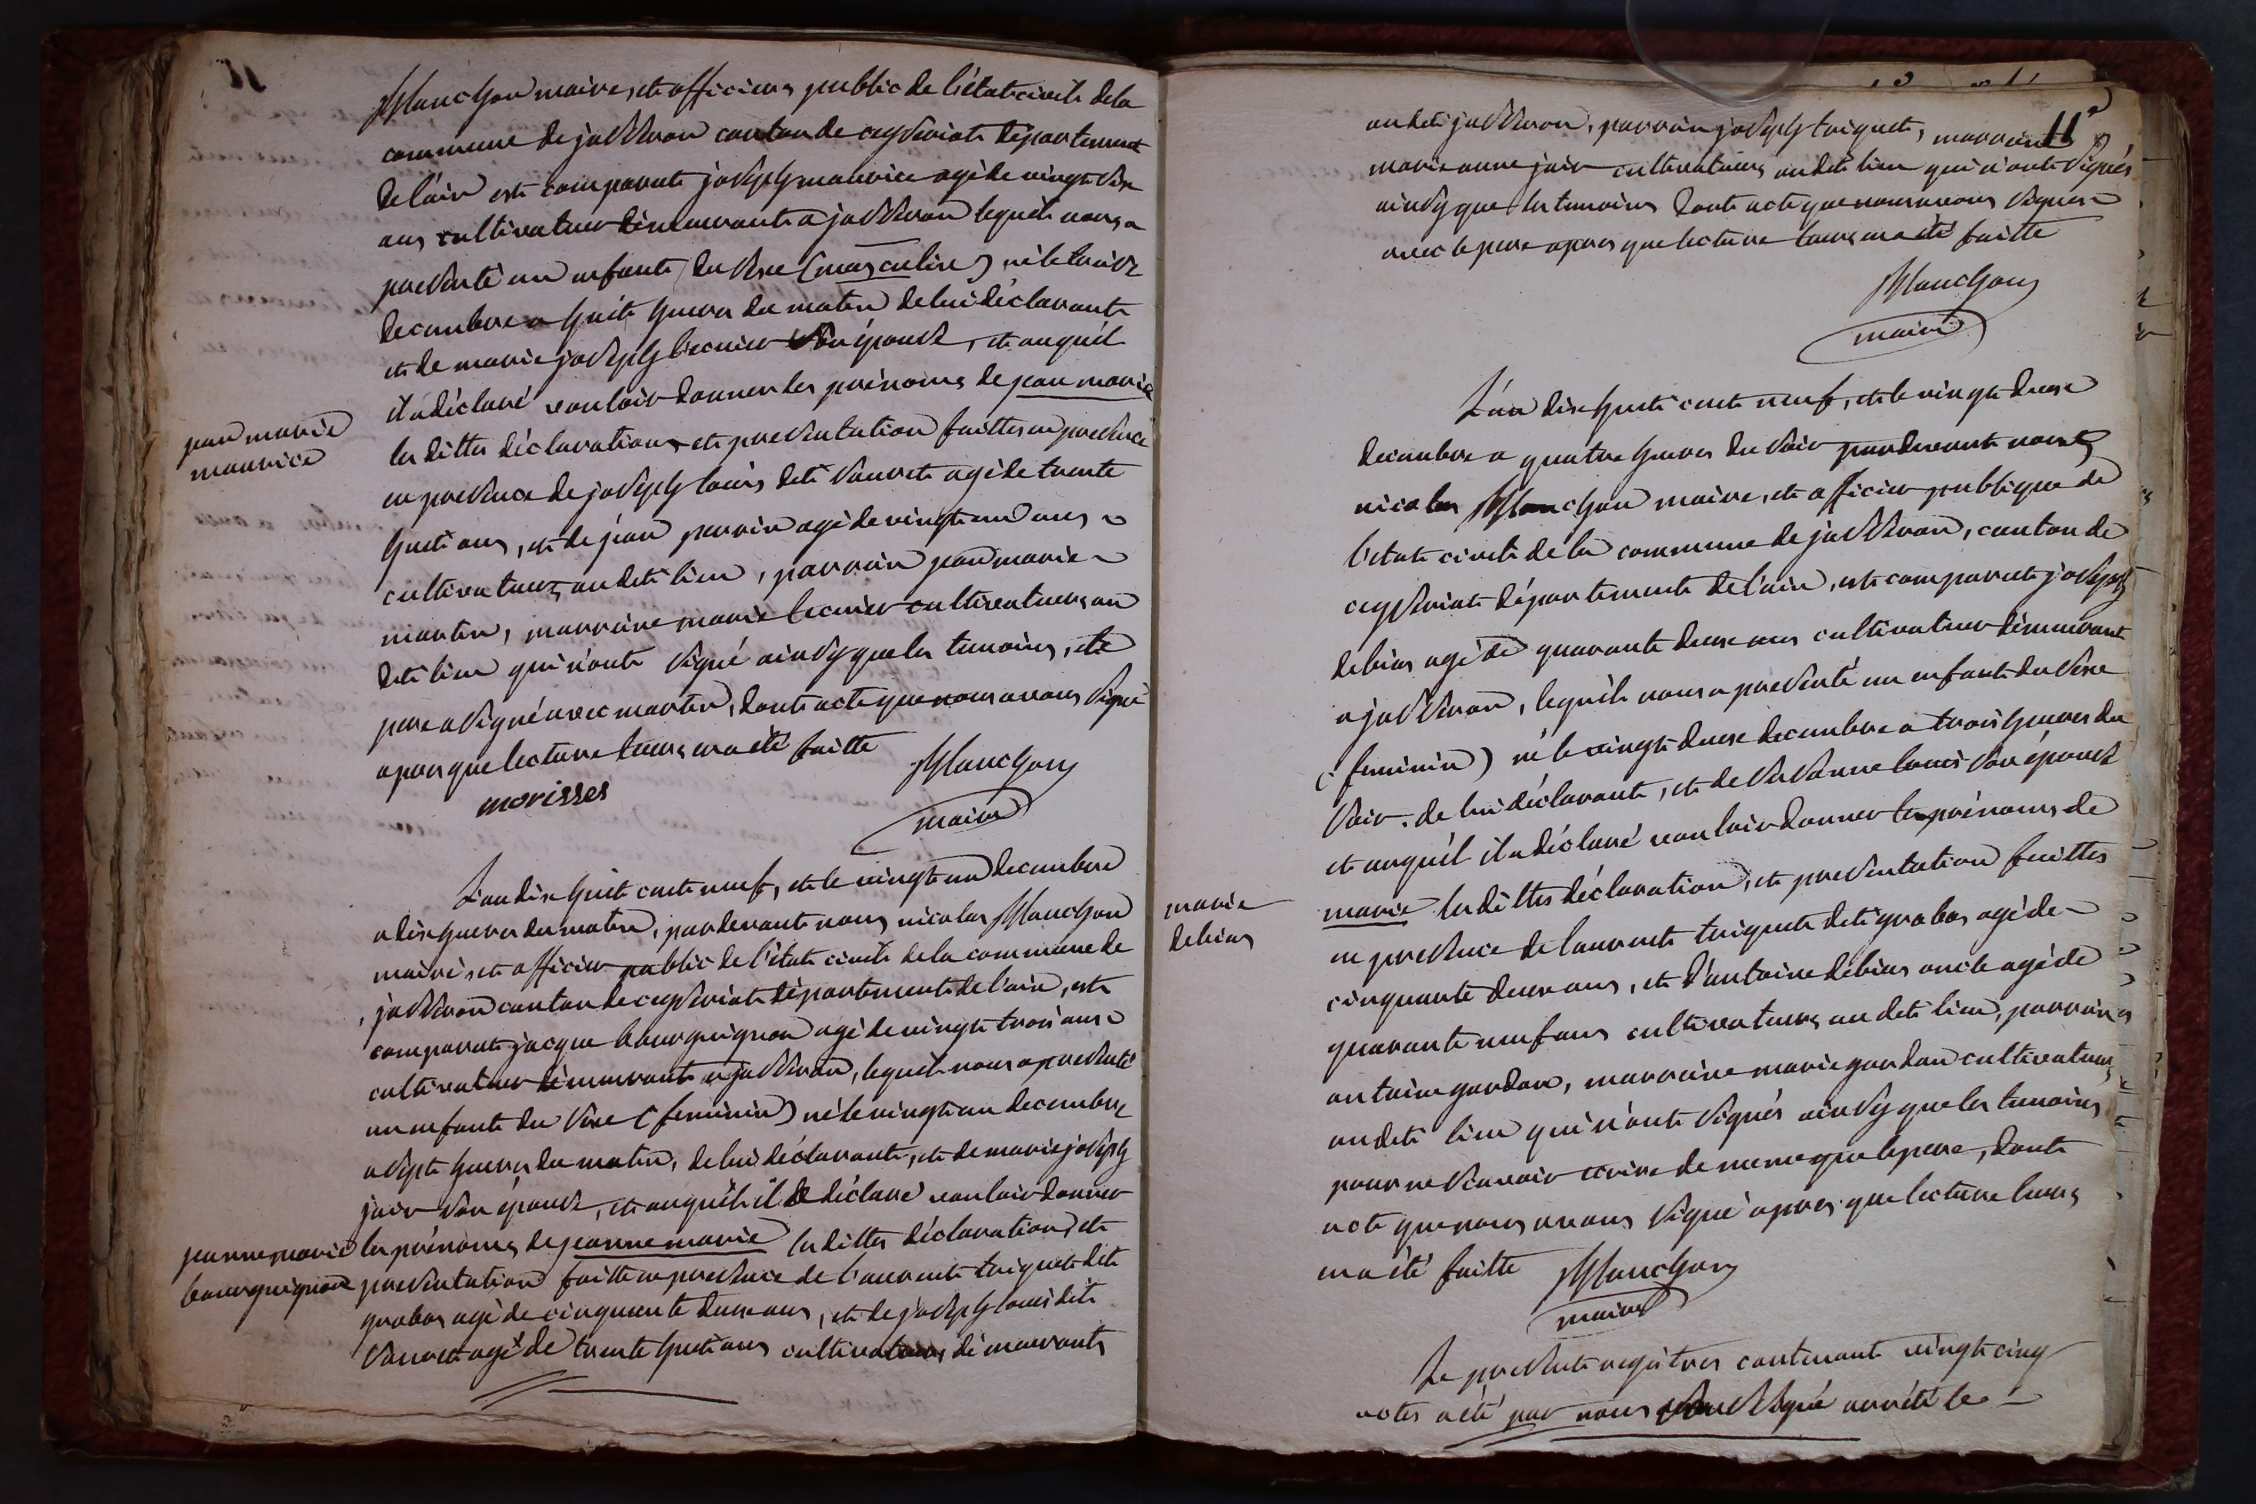 Manchon maire, et officier public de l'état civil de la
commune de jasseron canton de ceyseriat département
de l'ain est comparut joseph maurice agé de vingt six
ans cultivateur démeurant a jasseron lequel nous a
presenté un enfant du sexe (masculin) né le treize
decembre a huit heures du matin de lui déclarant
et de marie joseph lecuier son épouse, et auquél
il a déclaré vouloir donner les prénoms de jean marie
jean marie
maurice
les dittes déclarations et presentation faittes en presence
en presence de joseph louis dit vauret agé de trente
huit ans, et de jéan perrin agé de vingt un ans
cultivateurs au dit lieu, parrain jean marie
martin, marraine marie lecuier cultivateurs au
dit lieu qui n'ont signé ainsy que les temoins, le
pere a signé avec martin, dont acte que nous avons signé
apres que lecture leurs en a été faitte
Manchon
morisses
maire
L'an dix huit cent neuf, et le vingt un decembre
a dix heures du matin, pardevant nous nicolas Manchon
maire et officier public de l'état civil de la commune de
jasseron canton de ceyseriat département de l'ain, est
comparut jacque bourguignon agé de vingt trois ans
cultivateur démeurant a jasseron, lequel nous a presenté
un enfant du sexe (feminin) né le vingt un decembre
a sept heures du matin, de lui déclarant, et de marie joseph
join son épouse, et auquél il a déclaré vouloir donner
jeanne marie
bourguignon
les prénoms de jeanne marie les dittes déclaration, et
presentation faitte en presence de laurent triquet dit
grabos agé de cinquante deux ans, et de joseph louis dit
vauret agé de trente huit ans cultivateurs démeurants
11
au dit jasseron, parrain joseph triquet, marraine
marie anne join cultivateurs au dit lieu qui n'ont signés
ainsy que les temoins dont acte que nous avons signés
avec le pere apres que lecture leurs en a été faitte
Manchon
maire
L'an dix huit cent neuf, et le vingt deux
decembre a quatre heures du soir pardevant nous
nicolas Manchon maire, et officier publique de
l'état civil de la commune de jasseron, canton de
ceyseriat département de l'ain, est comparut joseph
debias agé de quarante deux ans cultivateur démeurant
a jasseron, lequél nous a presenté un enfant du sexe
(feminin) né le vingt deux decembre a trois heures du
soir. de lui déclarant, et de susanne louis son épouse
et auquél il a déclaré vouloir donner les prénoms de
marie
debias
marie les dittes déclaration, et presentation faittes
en presence de laurent triquet dit grabos agé de
cinquante deux ans, et d'antoine debias oncle agé de
quarante neuf ans cultivateurs au dit lieu, parrain
antoine gordon, marraine marie gordon cultivateurs
au dit lieu qui n'ont signés ainsy que les temoins
pour ne scavoir écrire de meme que le pere, dont
acte que nous avons signé apres que lecture leurs
en a été faitte Manchon
maire
Le present registres contenant vingt cinq
actes a été par nous soussigné arrété le